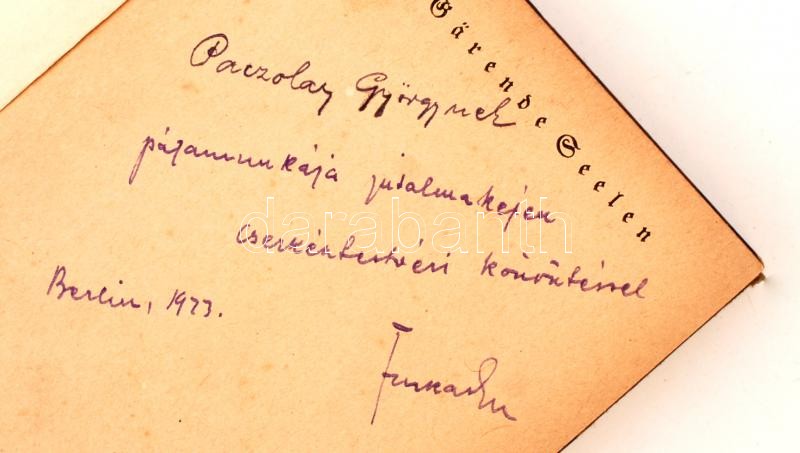 Gärende Seelen
Paczolay Györgynek
pályamunkája jutalmaképen
cserkésztestvéri köszöntéssel
Berlin, 1923.
darabanth